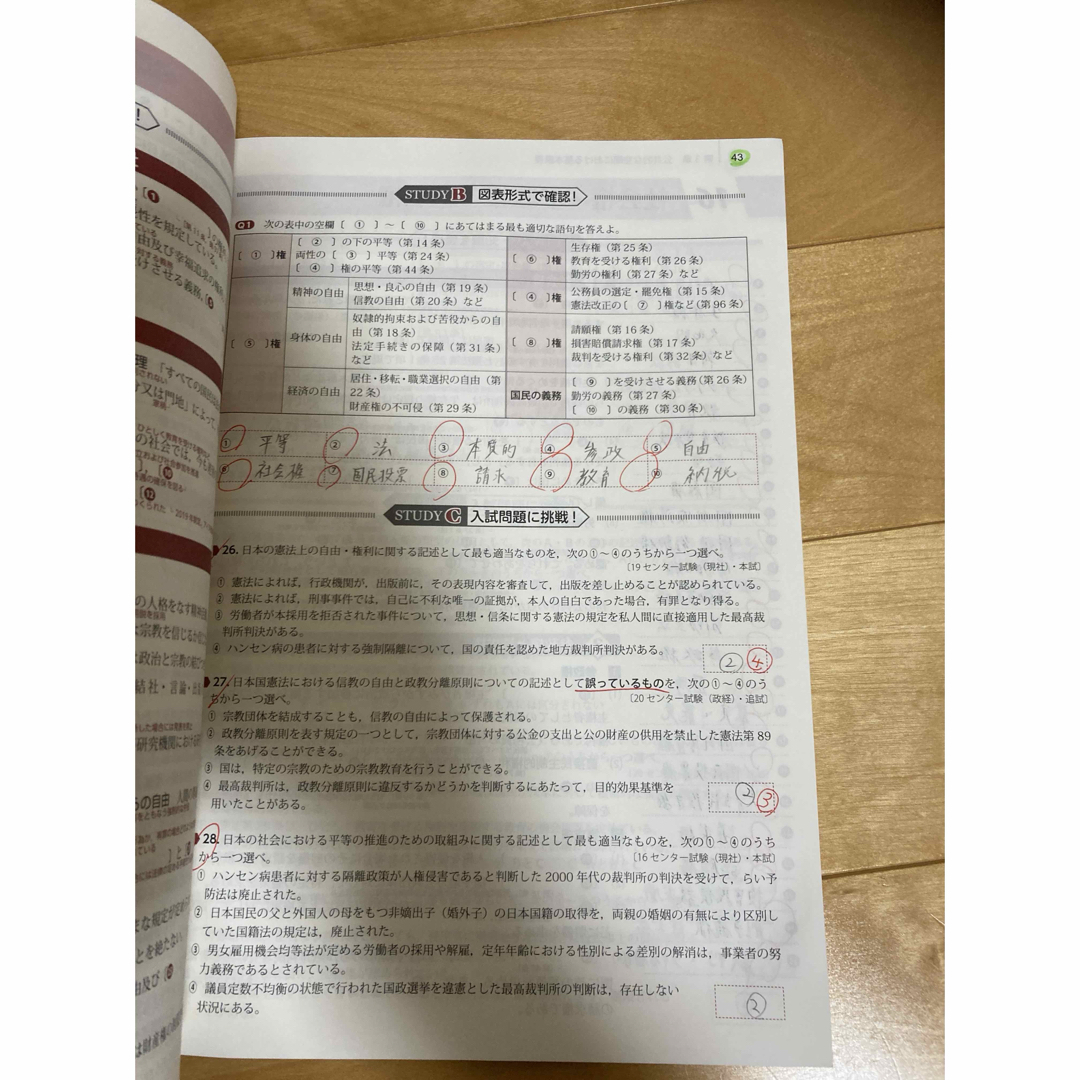 43
STUDY B 図表形式で確認！
Q1 次の表中の空欄〔 ① 〕～〔 ⑩ 〕にあてはまる最も適切な語句を答えよ。
〔 ① 〕権
〔 ② 〕の下の平等（第14条）
両性の〔 ③ 〕平等（第24条）
〔 ④ 〕権の平等（第44条）
〔 ⑤ 〕権
精神の自由
思想・良心の自由（第19条）
信教の自由（第20条）など
身体の自由
奴隷的拘束および苦役からの自
由（第18条）
法定手続きの保障（第31条）
など
経済の自由
居住・移転・職業選択の自由（第
22条）
財産権の不可侵（第29条）
〔 ⑥ 〕権
生存権（第25条）
教育を受ける権利（第26条）
勤労の権利（第27条）など
〔 ④ 〕権
公務員の選定・罷免権（第15条）
憲法改正の〔 ⑦ 〕権など（第96条）
〔 ⑧ 〕権
請願権（第16条）
損害賠償請求権（第17条）
裁判を受ける権利（第32条）など
国民の義務
〔 ⑨ 〕を受けさせる義務（第26条）
勤労の義務（第27条）
〔 ⑩ 〕の義務（第30条）
① 平等 ② 法 ③ 本質的 ④ 参政 ⑤ 自由
⑥ 社会権 ⑦ 国民投票 ⑧ 請求 ⑨ 教育 ⑩ 納税
STUDY C 入試問題に挑戦！
26. 日本の憲法上の自由・権利に関する記述として最も適当なものを，次の①～④のうちから一つ選べ。
〔19 センター試験（現社）・本試〕
① 憲法によれば，行政機関が，出版前に，その表現内容を審査して，出版を差し止めることが認められている。
② 憲法によれば，刑事事件では，自己に不利な唯一の証拠が，本人の自白であった場合，有罪となり得る。
③ 労働者が本採用を拒否された事件について，思想・信条に関する憲法の規定を私人間に直接適用した最高裁
判所判決がある。
④ ハンセン病の患者に対する強制隔離について，国の責任を認めた地方裁判所判決がある。
② ④
27. 日本国憲法における信教の自由と政教分離原則についての記述として誤っているものを，次の①～④のう
ちから一つ選べ。
〔20 センター試験（政経）・追試〕
① 宗教団体を結成することも，信教の自由によって保護される。
② 政教分離原則を表す規定の一つとして，宗教団体に対する公金の支出と公の財産の供用を禁止した憲法第89
条をあげることができる。
③ 国は，特定の宗教のための宗教教育を行うことができる。
④ 最高裁判所は，政教分離原則に違反するかどうかを判断するにあたって，目的効果基準を
用いたことがある。
② ③
28. 日本の社会における平等の推進のための取組みに関する記述として最も適当なものを，次の①～④のうち
から一つ選べ。
〔16 センター試験（現社）・本試〕
① ハンセン病患者に対する隔離政策が人権侵害であると判断した2000年代の裁判所の判決を受けて，らい予
防法は廃止された。
② 日本国民の父と外国人の母をもつ非嫡出子（婚外子）の日本国籍の取得を，両親の婚姻の有無により区別し
ていた国籍法の規定は，廃止された。
③ 男女雇用機会均等法が定める労働者の採用や解雇，定年年齢における性別による差別の解消は，事業者の努
力義務であるとされている。
④ 議員定数不均衡の状態で行われた国政選挙を違憲とした最高裁判所の判断は，存在しない
状況にある。
②